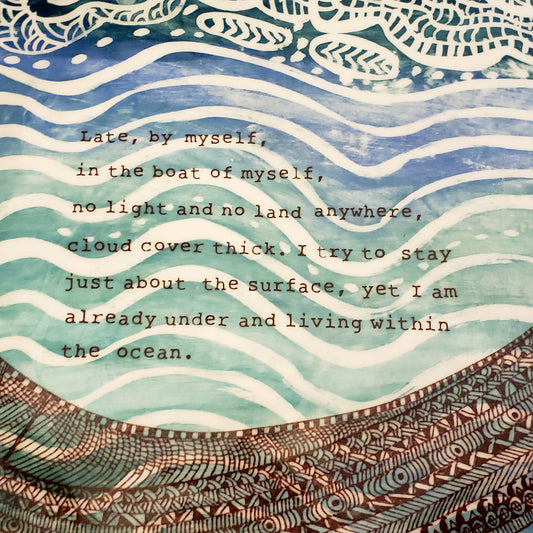 Late, by myself,
in the boat of myself,
no light and no land anywhere,
cloud cover thick. I try to stay
just about the surface, yet I am
already under and living within
the ocean.